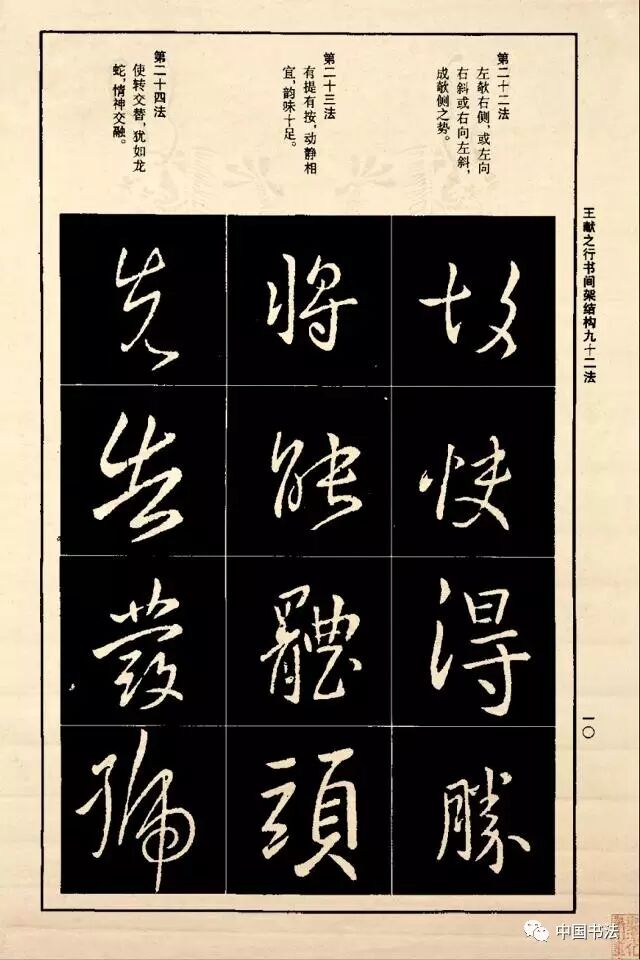 王献之行书间架结构九十二法
第二十二法
左欹右侧，或左向
右斜或右向左斜，
成欹侧之势。
故
快
得
胜
第二十三法
有提有按，动静相
宜，韵味十足。
将
能
體
頭
第二十四法
使转交替，犹如龙
蛇，情神交融。
先
告
發
一〇
中国书法